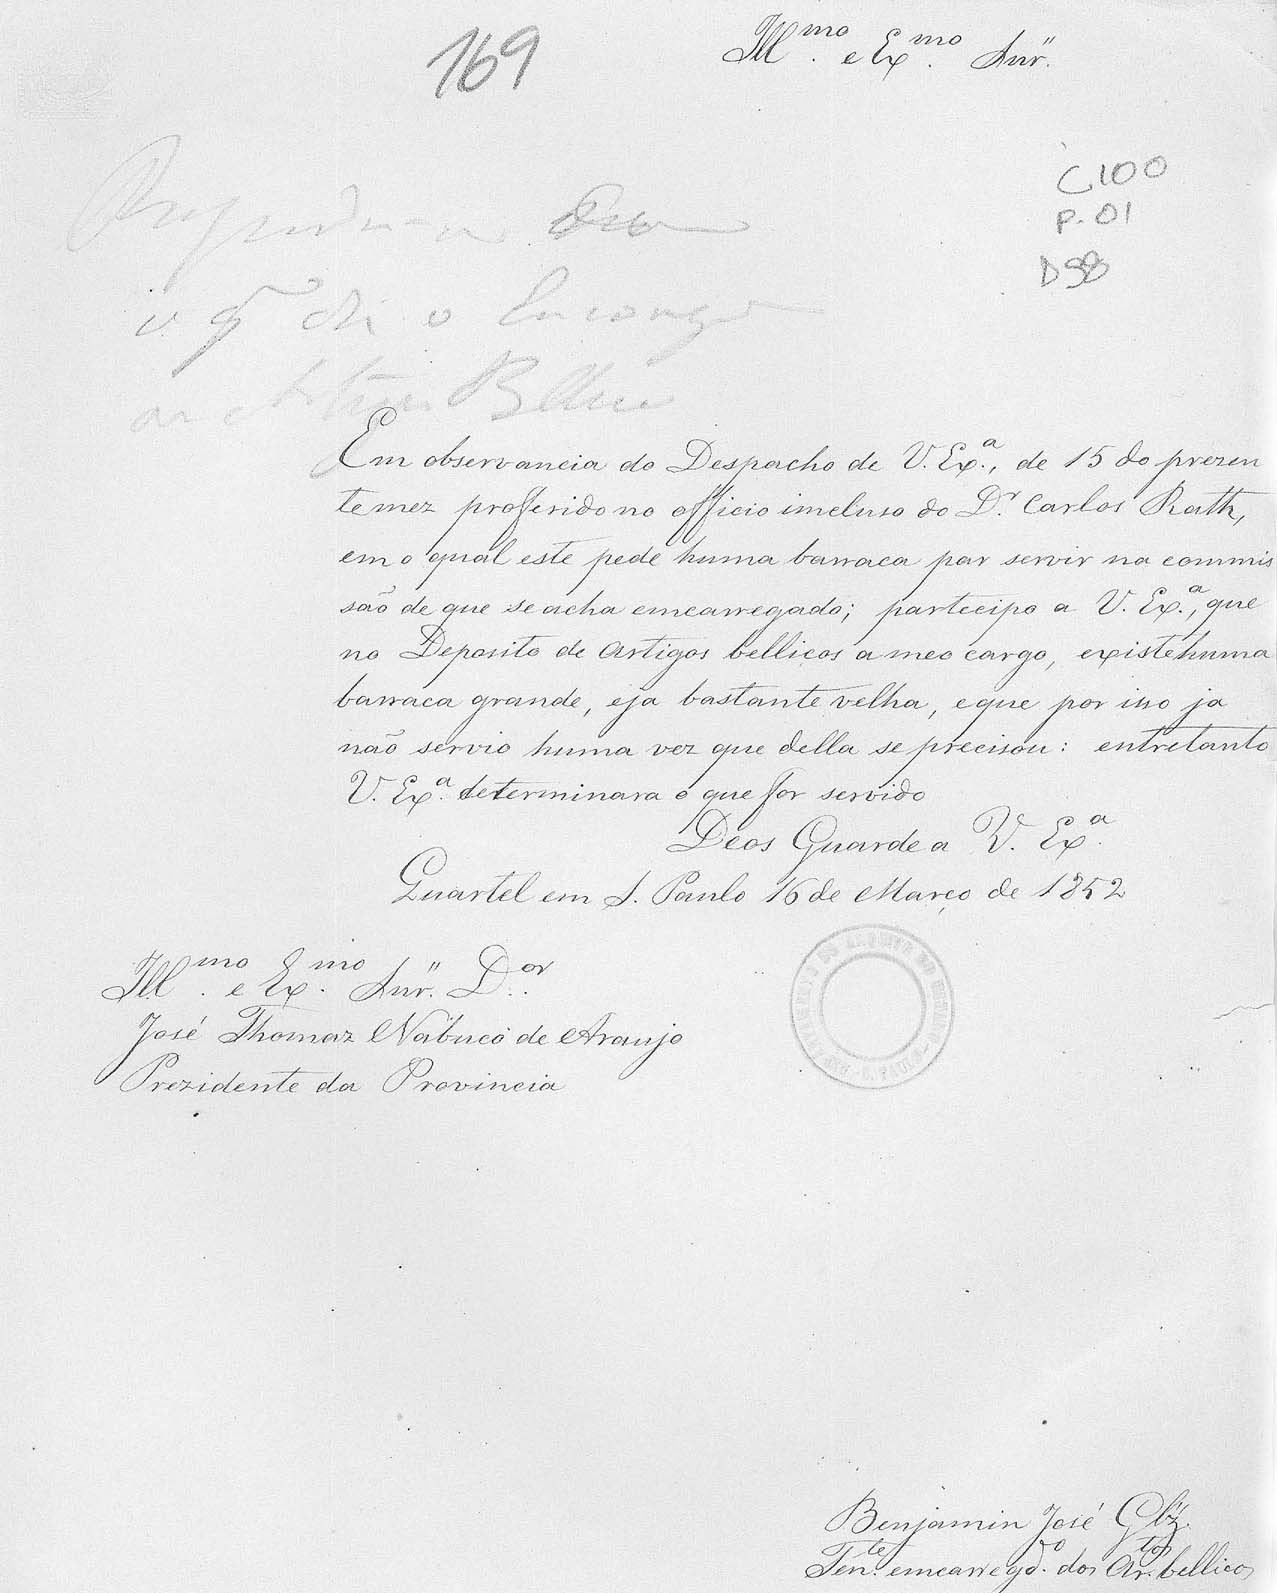 169
Ill.mo e Ex.mo Snr.
C100
P. 01
D98
o q' diz o Encarreg
Bellicos
Em observancia do Despacho de V. Ex.a, de 15 do prezen
te mez profferido no officio imcluso do D.r Carlos Rath,
em o qual este pede huma barraca par servir na commis
são de que se acha emcarregado; partecipo a V. Ex.a, que
no Deposito de Artigos bellicos a meo cargo, existe huma
barraca grande, e ja bastante velha, e que por isso ja
não servio huma vez que della se precisou: entretanto
V. Ex.a determinara o que for servido
Deos Guarde a V. Ex.a
Quartel em S. Paulo 16 de Março de 1852
Ill.mo e Ex.mo Snr. D.or
José Thomaz Nabuco de Araujo
Prezidente da Provincia
Benjamin José Glz.
Ten.te emcarregd.o dos Ar.tos bellicos